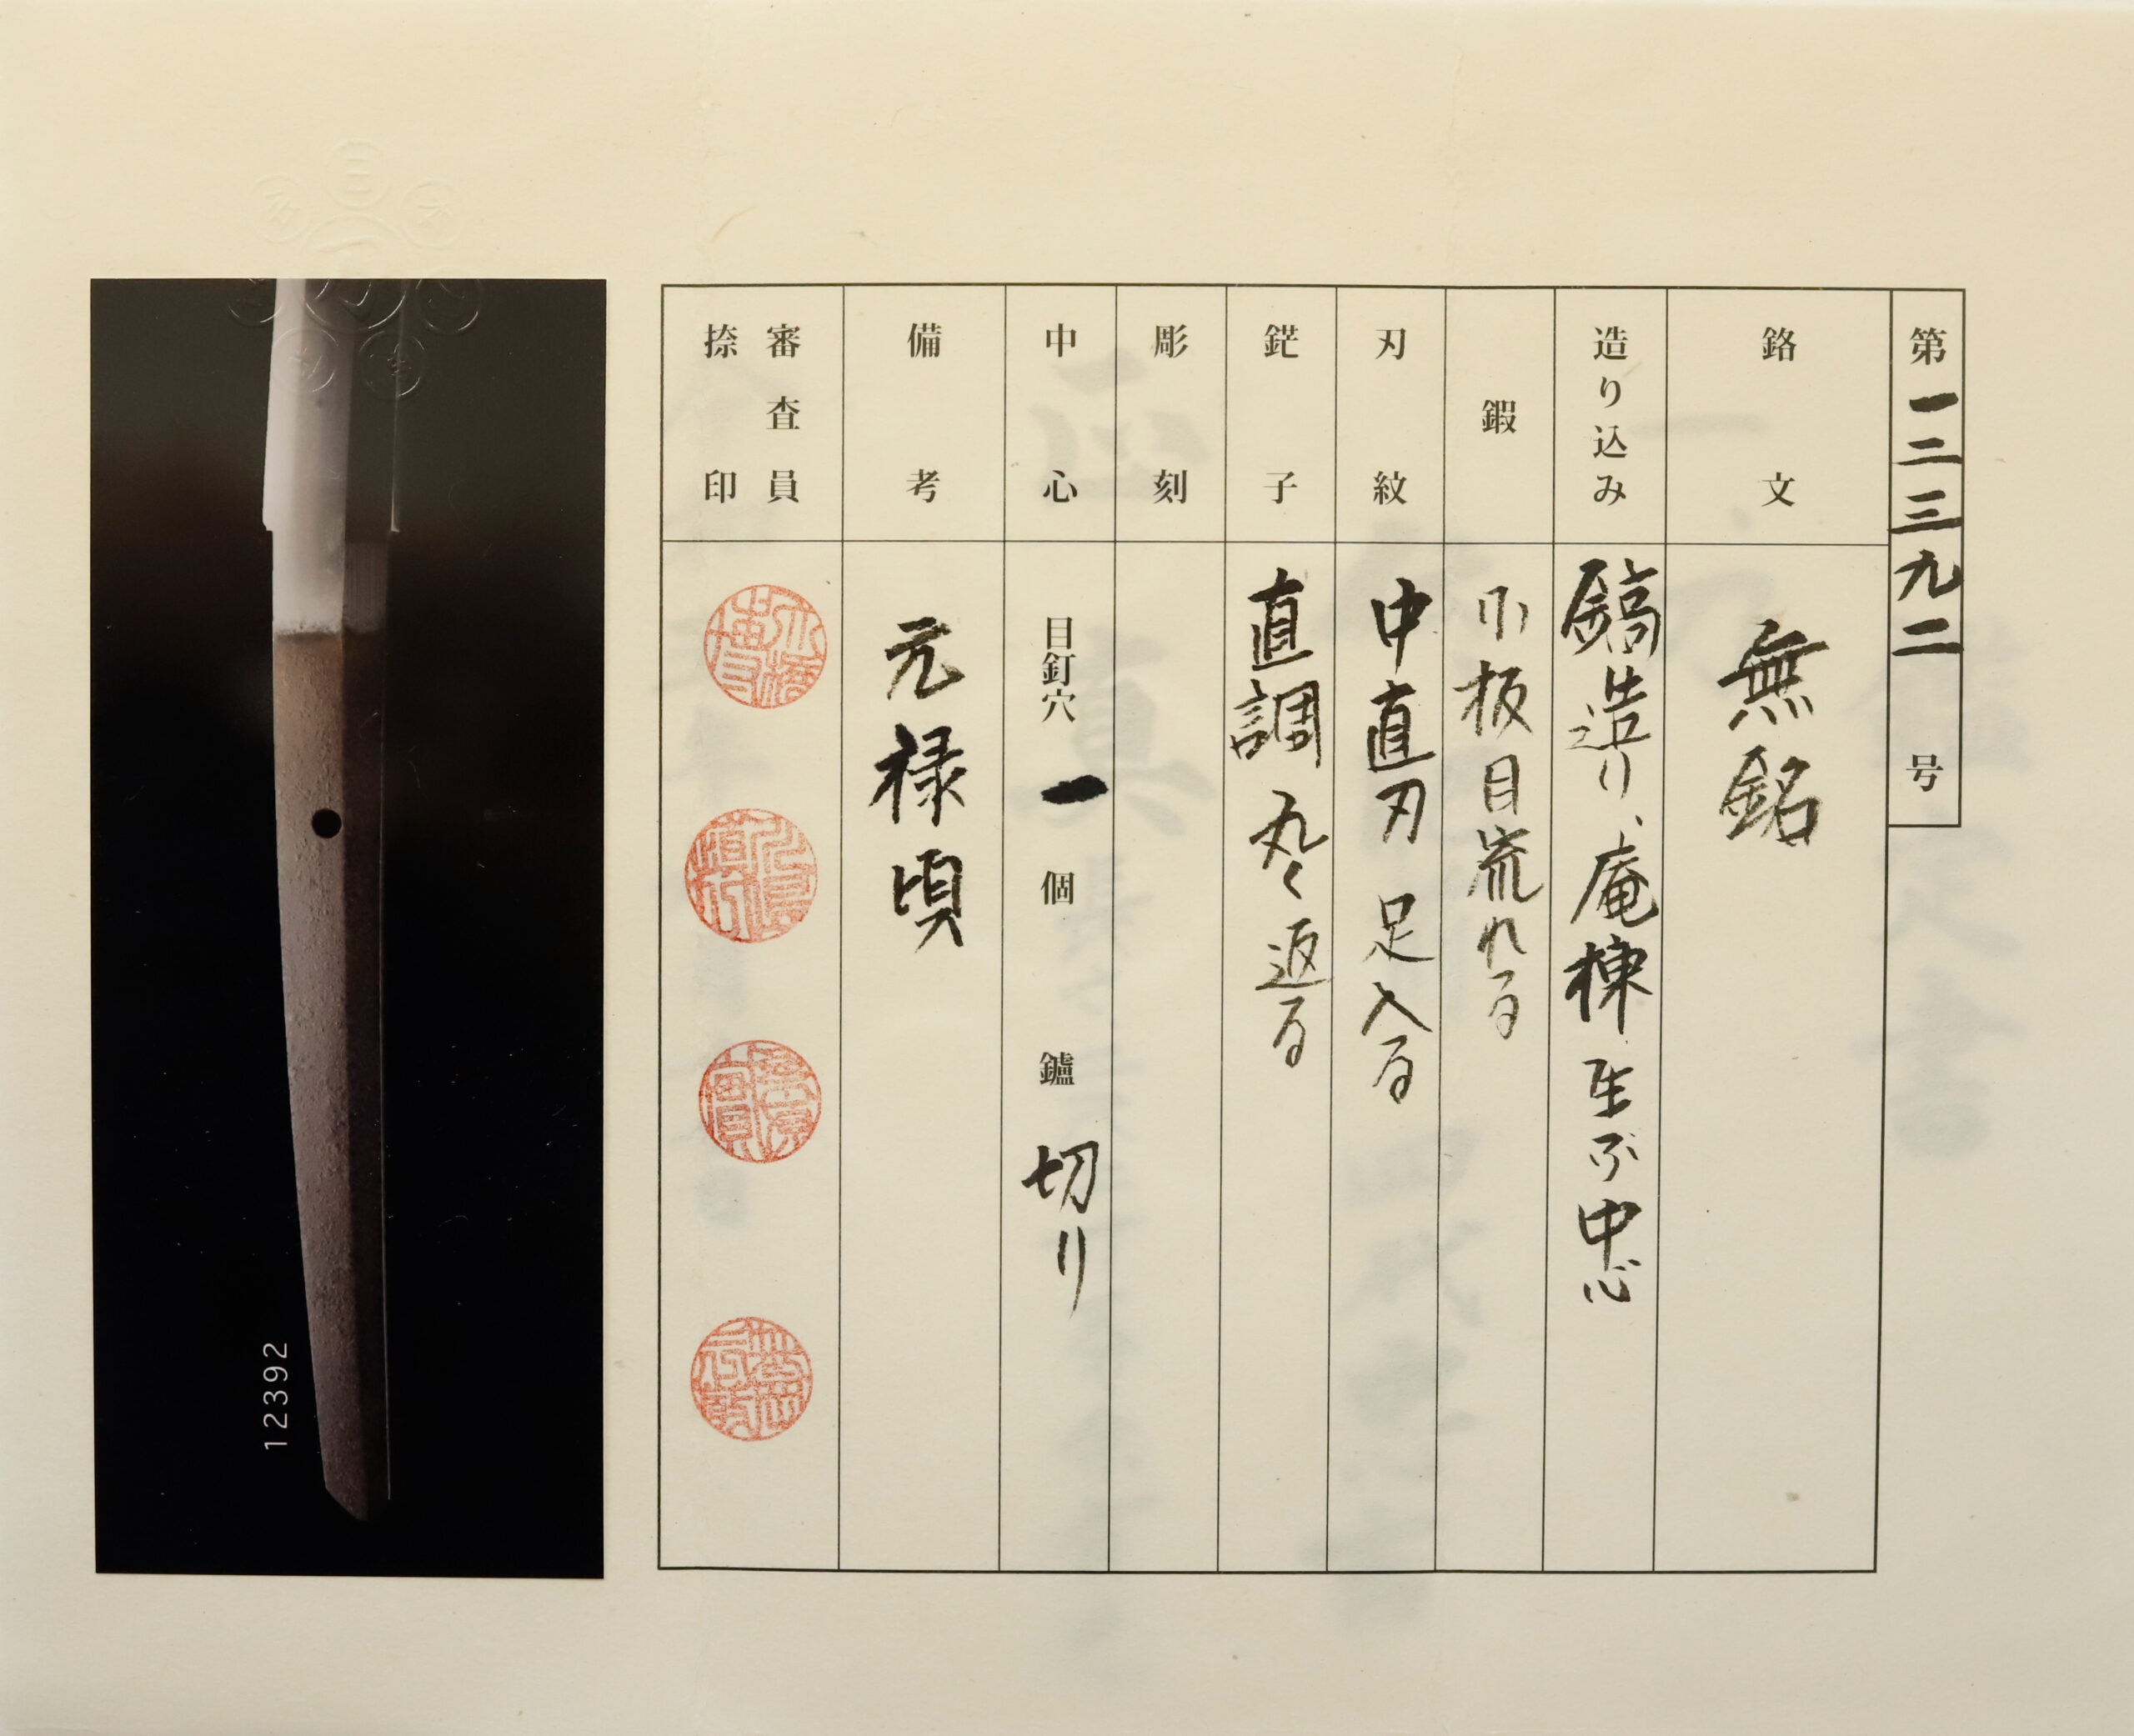 第一二三九二号
銘文 無銘
造り込み 鎬造り、庵棟 生ぶ中心
鍛 小板目流れる
刃紋 中直刃 足入る
鋩子 直調 丸く返る
彫刻
中心 目釘穴 一 個 鑢 切り
備考 元禄頃
審査員
捺印
12392